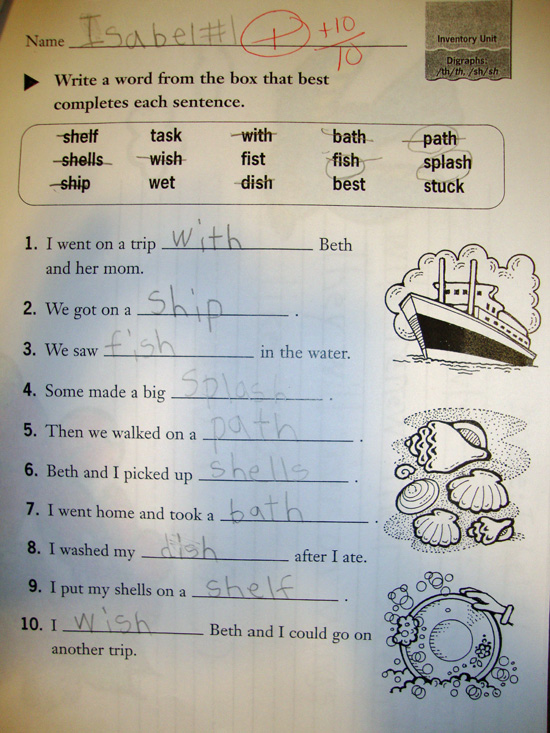 Name Isabel #1 + +10/10
Inventory Unit
Digraphs:
/th/th, /sh/sh
Write a word from the box that best
completes each sentence.
shelf task with bath path
shells wish fist fish splash
ship wet dish best stuck
1. I went on a trip with Beth
and her mom.
2. We got on a ship .
3. We saw fish in the water.
4. Some made a big Splash .
5. Then we walked on a path .
6. Beth and I picked up shells .
7. I went home and took a bath .
8. I washed my dish after I ate.
9. I put my shells on a shelf .
10. I wish Beth and I could go on
another trip.